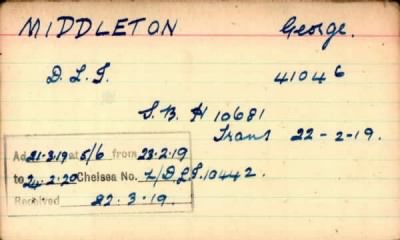 MIDDLETON George.
D.L.I. 41046
S.B. H 10681
Trans 22-2-19.
Ad 21-3-19 at 5/6 from 23.2.19
to 24-2-20 Chelsea No. L/DLI.10442.
Received 22.3.19.